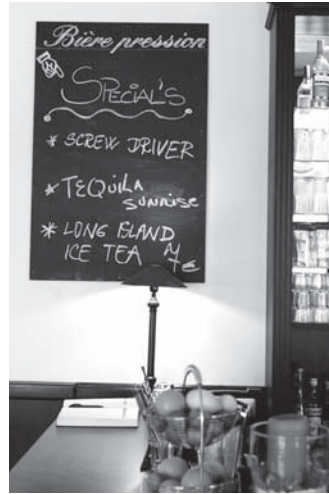 Bière pression
SPECIAL'S
* SCREW DRIVER
* TEQUILA
SUNRISE
* LONG ISLAND
ICE TEA 7€